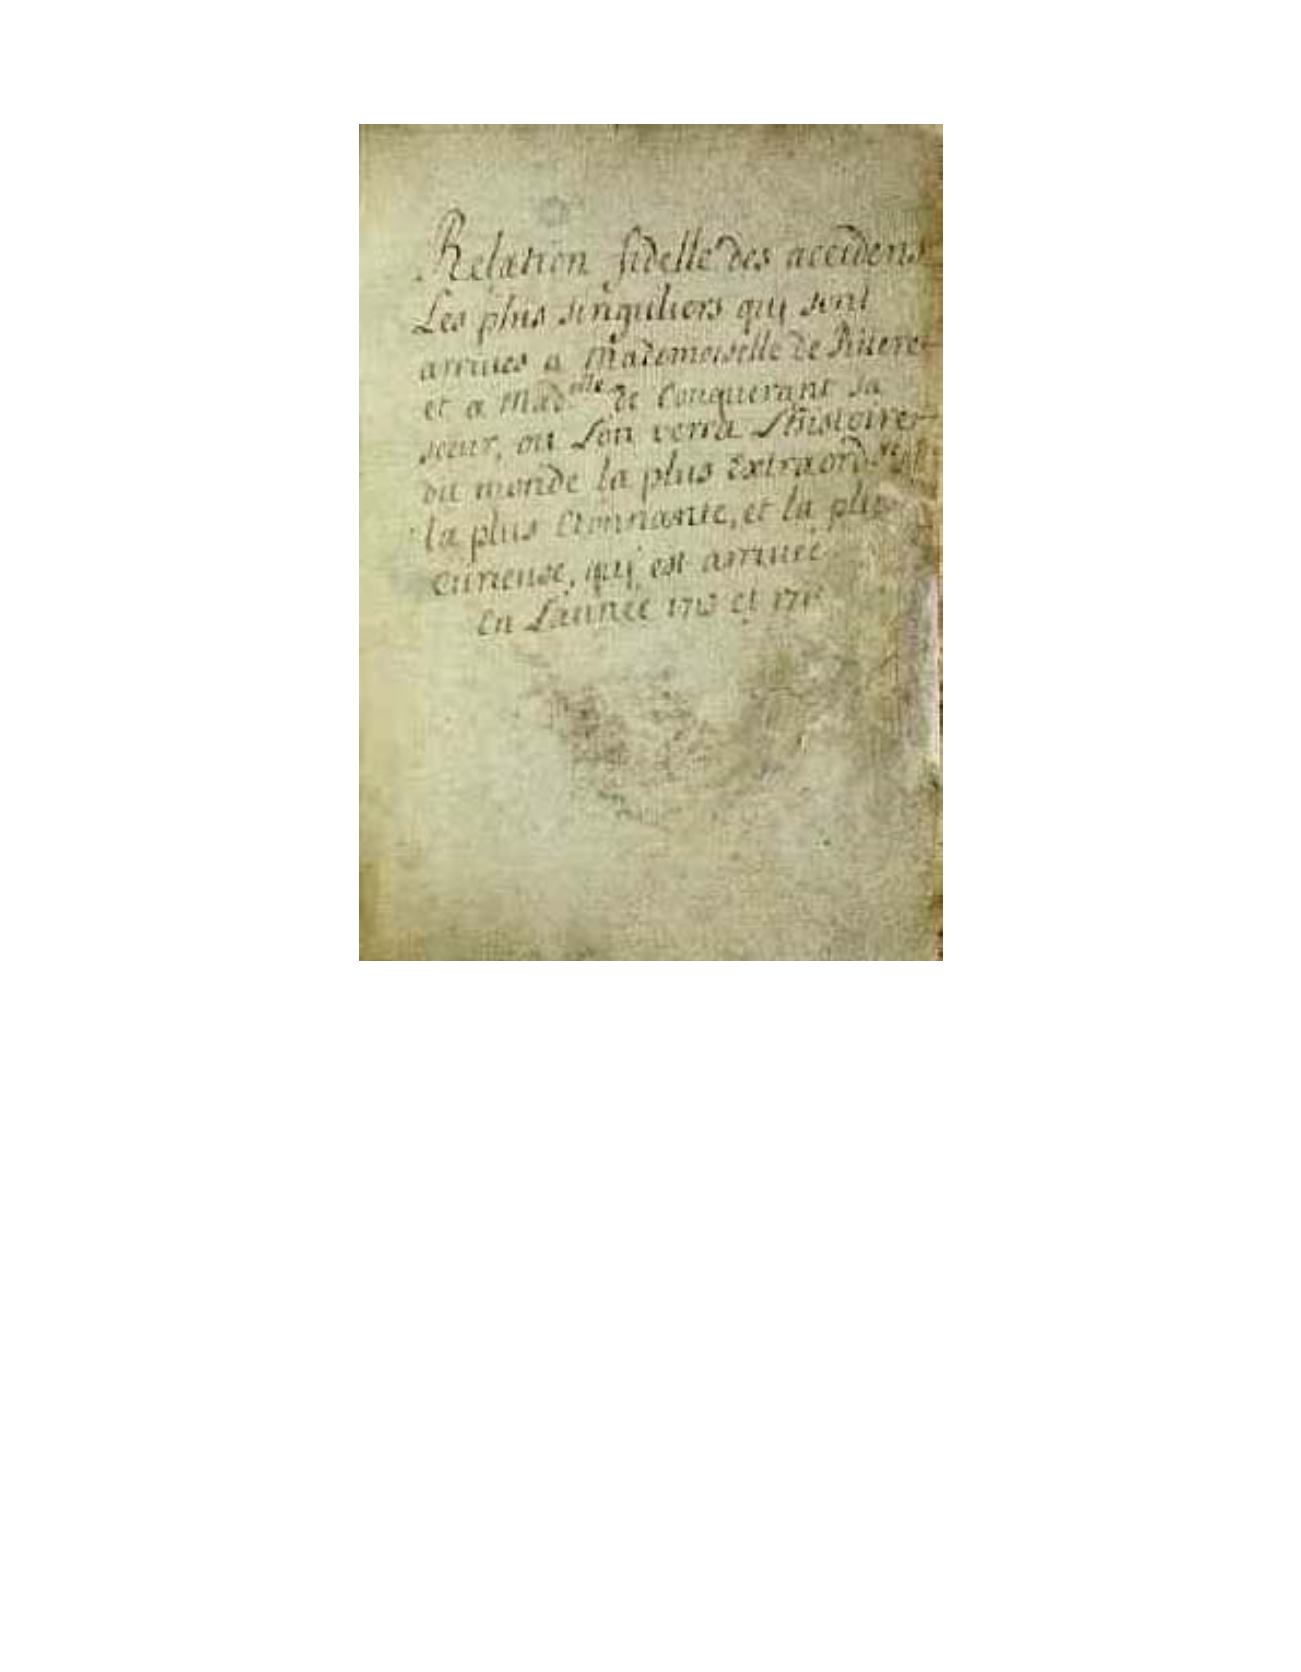 Relation fidelle des accidens
Les plus singuliers qui sont
arriues a Mademoiselle de
et a Mad.elle de Conquerant sa
sœur, ou L'on verra L'histoire
du monde la plus Extraord.re et
la plus Etonnante, et la plus
curieuse, qui est arriueé
En L'anneé et